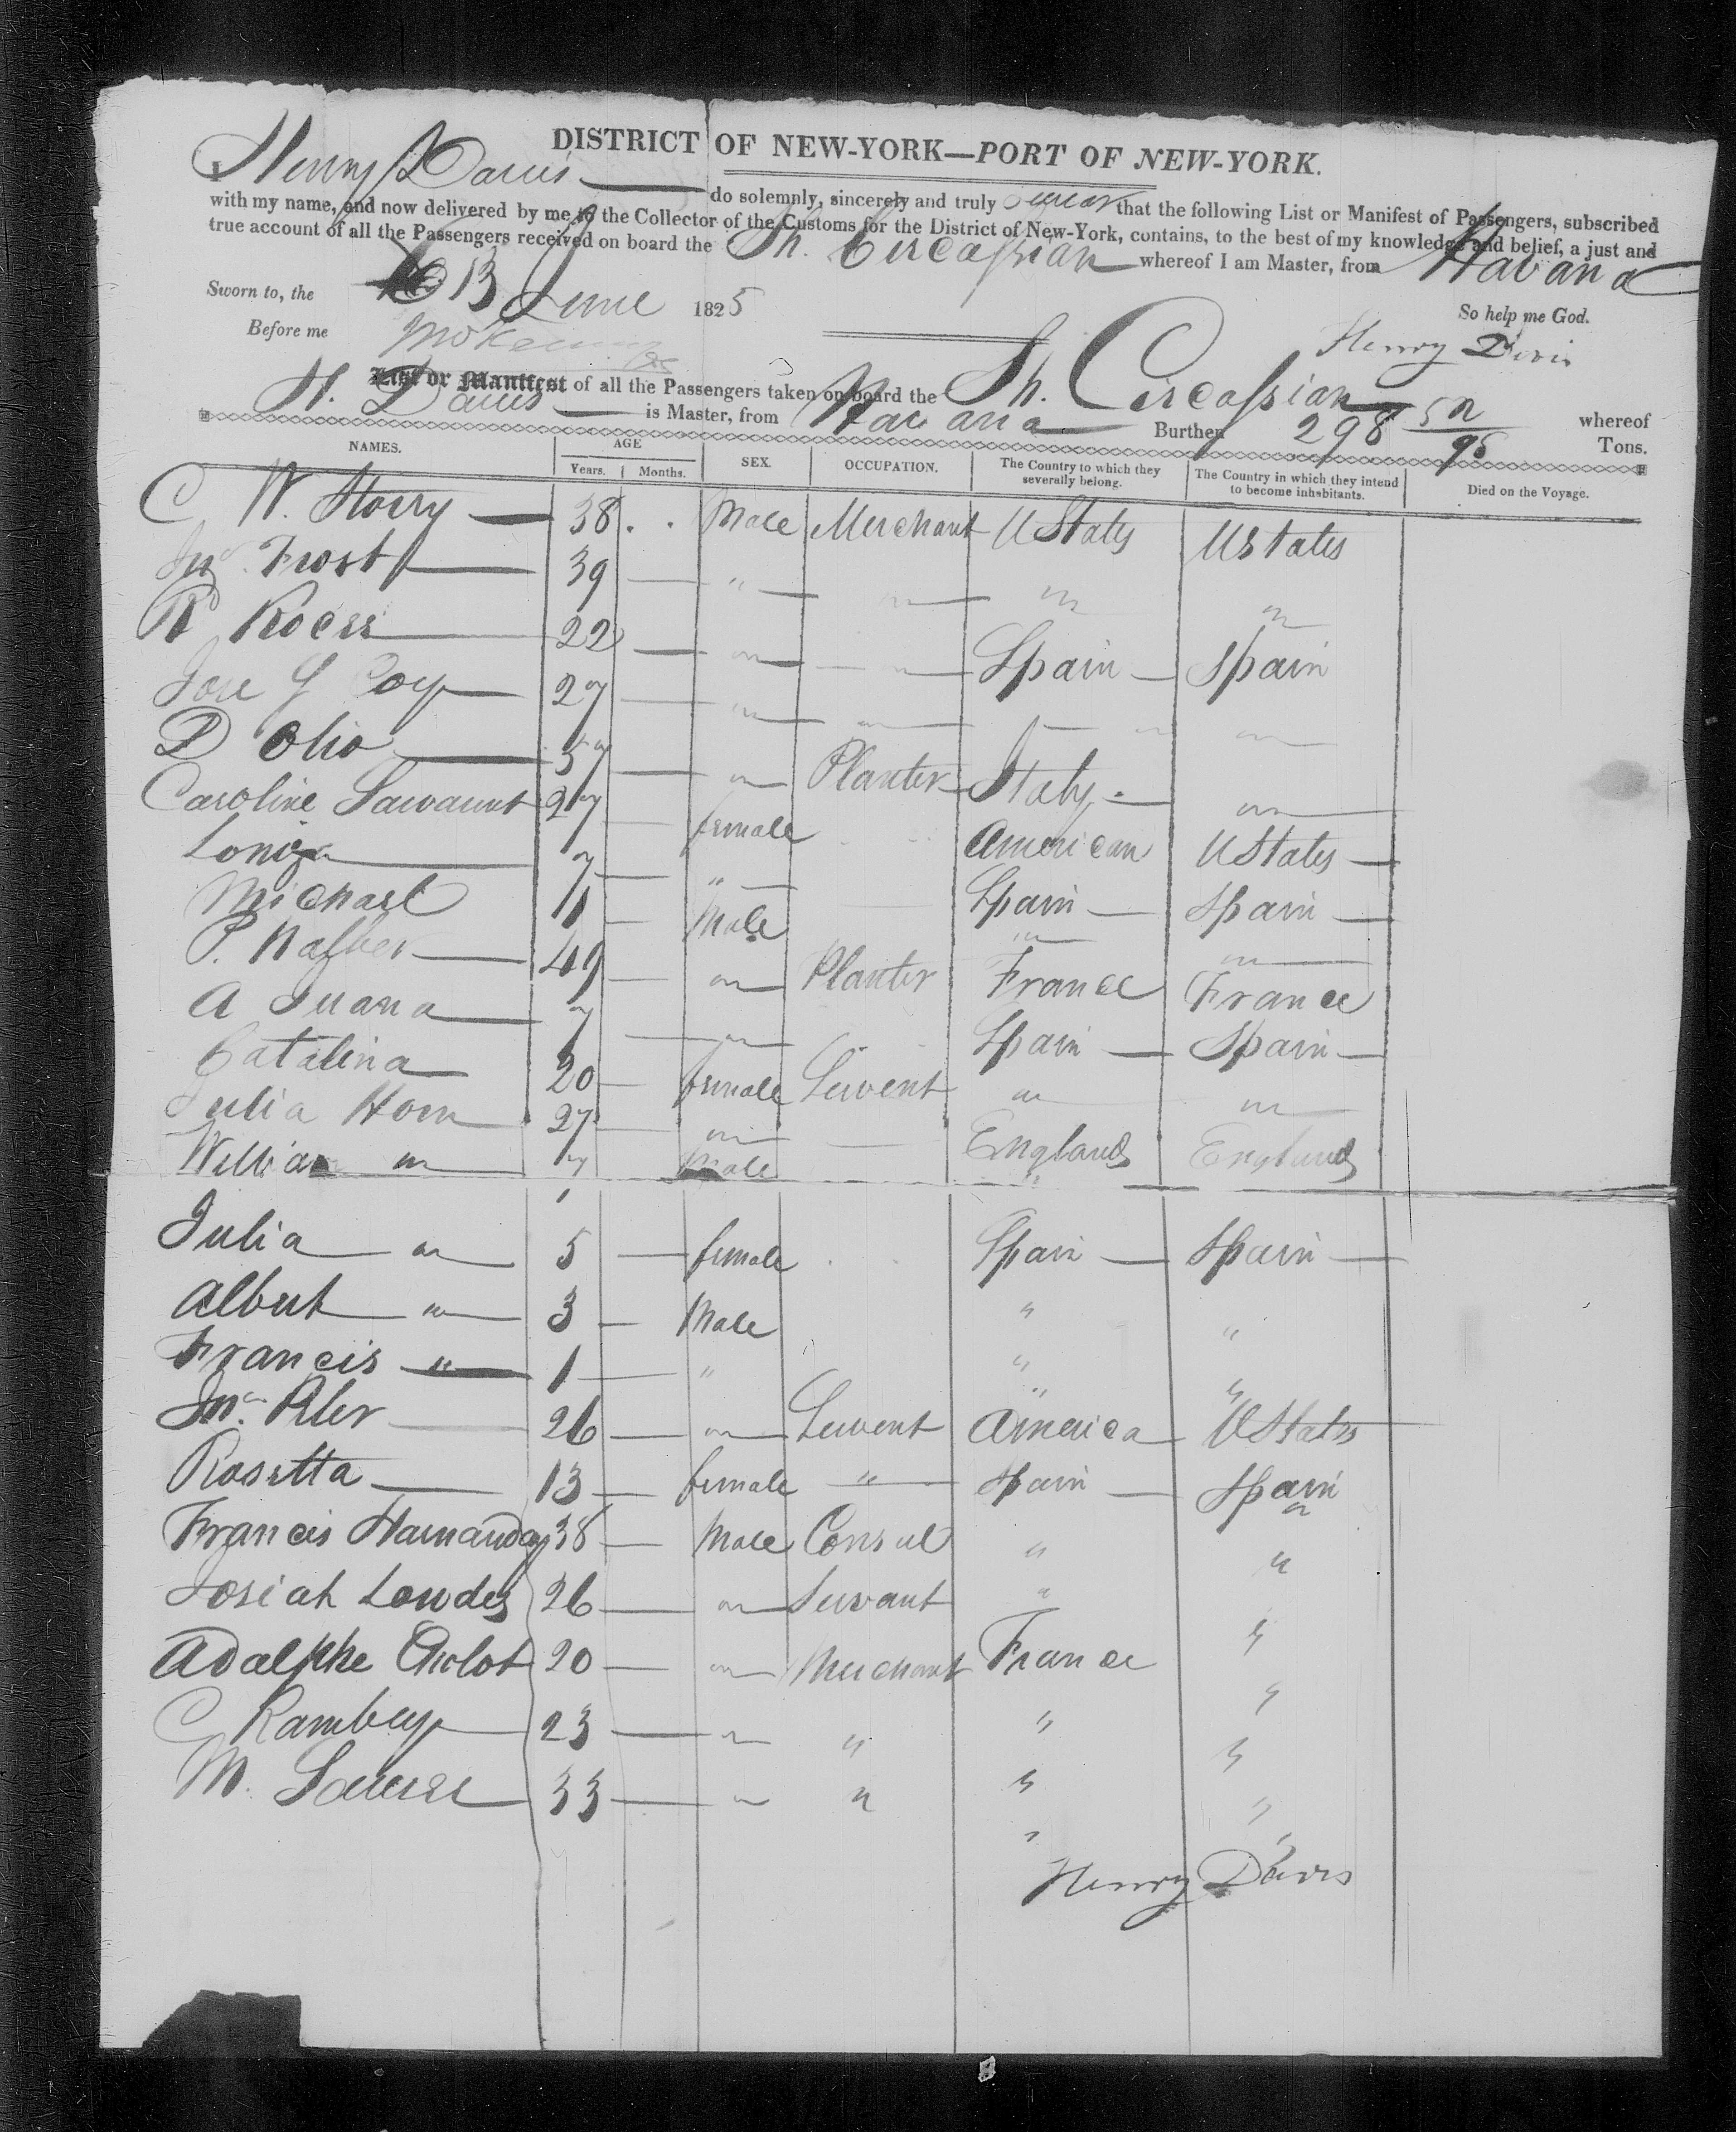 DISTRICT OF NEW-YORK—PORT OF NEW-YORK.
I Henry Davis do solemnly, sincerely and truly swear that the following List or Manifest of Passengers, subscribed
with my name, and now delivered by me to the Collector of the Customs for the District of New-York, contains, to the best of my knowledge and belief, a just and
true account of all the Passengers received on board the Sh. Circassian whereof I am Master, from Havana
Sworn to, the 13 June 1825 So help me God.
Before me Henry Davis
List or Manifest of all the Passengers taken on board the Sh. Circassian whereof
H. Davis is Master, from Havana Burthen 298 52/95 Tons.
NAMES. AGE SEX. OCCUPATION. The Country to which they severally belong. The Country in which they intend to become inhabitants. Died on the Voyage.
Years. Months.
C W. Storry 38 Male Merchant U States U States
Jno Frost 39 " " " "
22 " " Spain Spain
Jose G 27 " " " "
P Olio 57 " Planter Italy "
Caroline 27 female American U States
7 " Spain Spain
Michael 11 Male " "
P. 49 " Planter France France
A Juana 7 " Spain Spain
Catalina 20 female Servent " "
Julia Horn 27 " England England
William " 7 Male "
Julia " 5 female Spain Spain
Albert " 3 Male " "
Francis " 1 " " "
Jno. 26 " Servent America U States
Rosetta 13 female " Spain Spain
Francis 38 Male Consul " "
Josiah Lowdes 26 " Servant " "
Adalphe 20 " Merchant France "
C 23 " " " "
M. 33 " " " "
Henry Davis